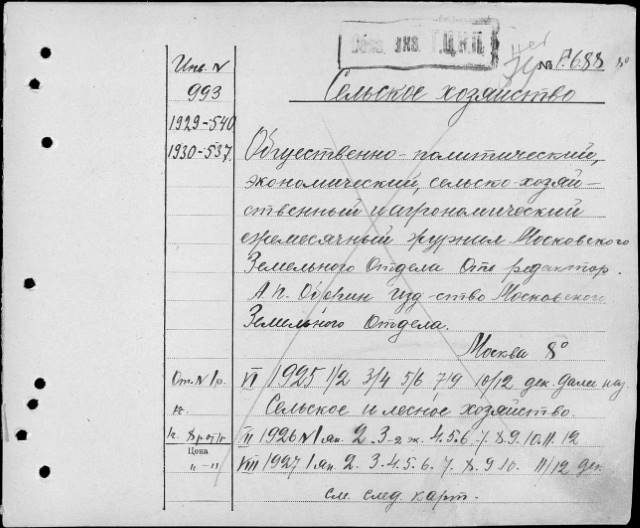 Обяз. экз. Г.Ц.К.П.
№ Г.688 8°
Инв. №
993
1929-540
1930-537.
Сельское хозяйство
Общественно-политический,
экономический, сельско-хозяй-
ственный и агрономический
ежемесячный журнал Московского
Земельного Отдела Отв. редактор
А.П. изд-ство Московского
Земельного Отдела.
Москва 8°
От. №1 р. VI 1925 1/2 3/4 5/6 7/9 10/12 дек. Далее наз.
к. Сельское и лесное хозяйство.
1926 №1 ян. 2. 3. 4. 5. 6. 7. 8. 9. 10. 11. 12
Цена
VIII 1927 1 ян. 2. 3. 4. 5. 6. 7. 8. 9. 10. 11/12 дек.
см. след. карт.